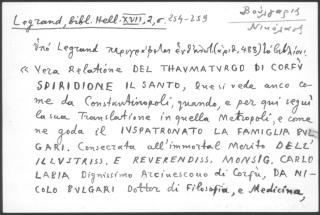 Legrand, bibl. Hell. XVII, 2, σ. 254-259
Βούλγαρις
Νικόλαος
Ὑπὸ Legrand περιγράφεται ἐνδελεχῶς (ἀριθ. 488) τὸ βιβλίον.
« Vera Relatione DEL THAVMATVRGO DI CORFÙ
SPIRIDIONE IL SANTO, Onesi vede anco co-
me da Constantinopoli, quando, e per qui seguì
la sua Translatione in quella Metropoli, e come
ne goda il IVSPATRONATO LA FAMIGLIA BVL
GARI. Consecrata all'immortal Merito DELL'
ILLVSTRISS. E REVERENDISS. MONSIG. CARLO
LABIA Dignissimo Arcivescovo di Corfù, DA NI-
COLO BVLGARI Dottor di Filosofia, e Medicina,